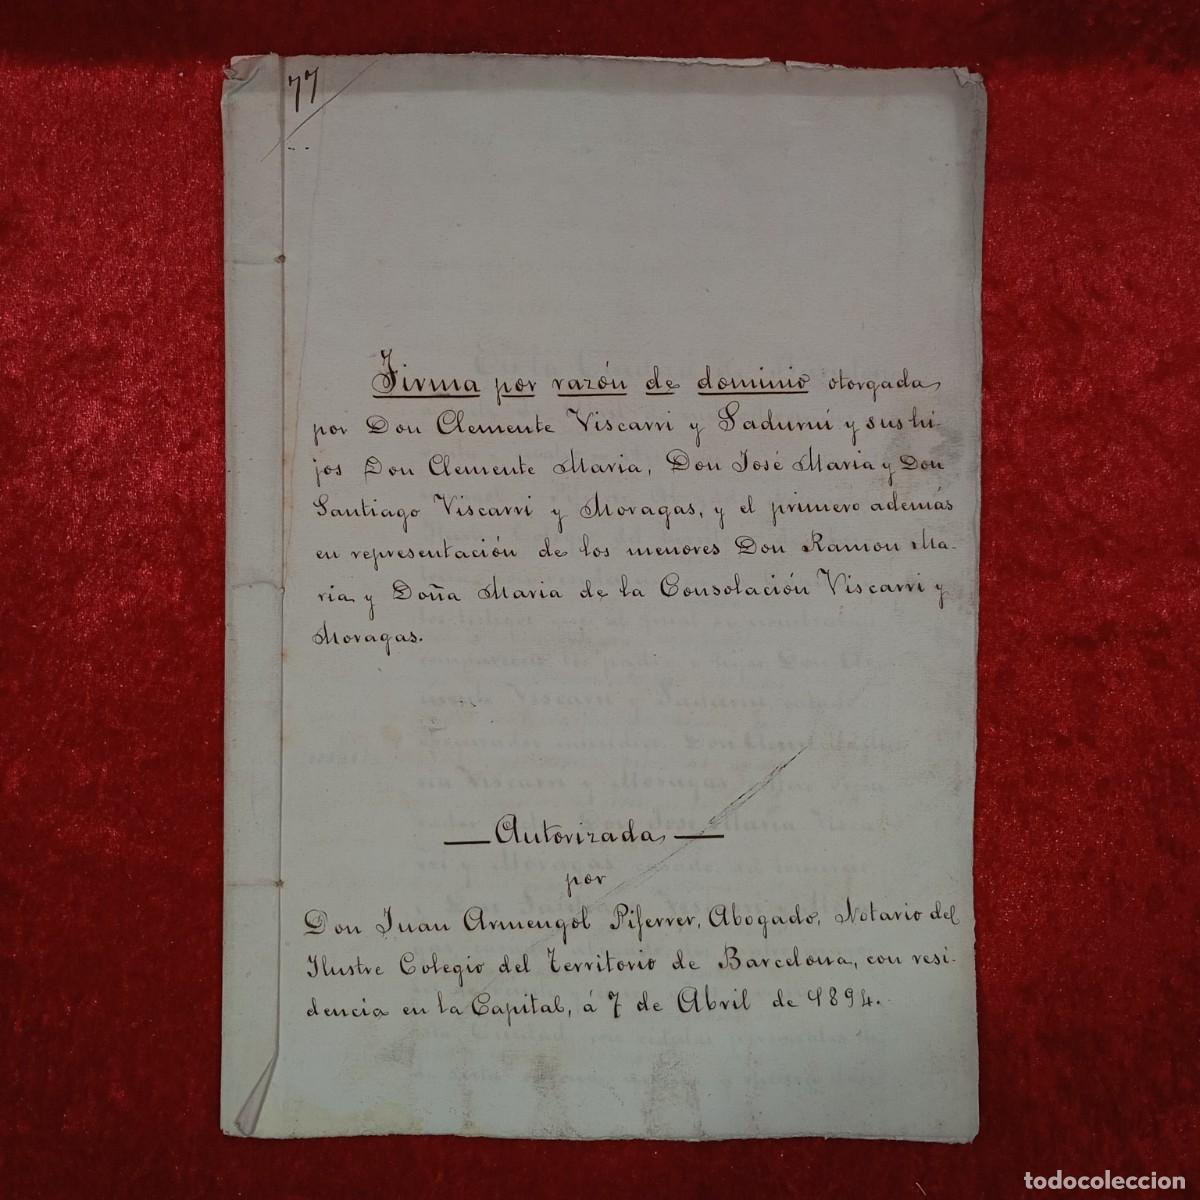 77
Firma por razón de dominio otorgada
por Don Clemente Viscarri y Sadurní y sus hi-
jos Don Clemente Maria, Don José Maria y Don
Santiago Viscarri y Moragas, y el primero además
en representación de los menores Don Ramon Ma-
ria y Doña Maria de la Consolación Viscarri y
Moragas.
Autorizada
por
Don Juan Armengol Piferrer, Abogado, Notario del
Ilustre Colegio del Territorio de Barcelona, con resi-
dencia en la Capital, á 7 de Abril de 1894.
todocoleccion